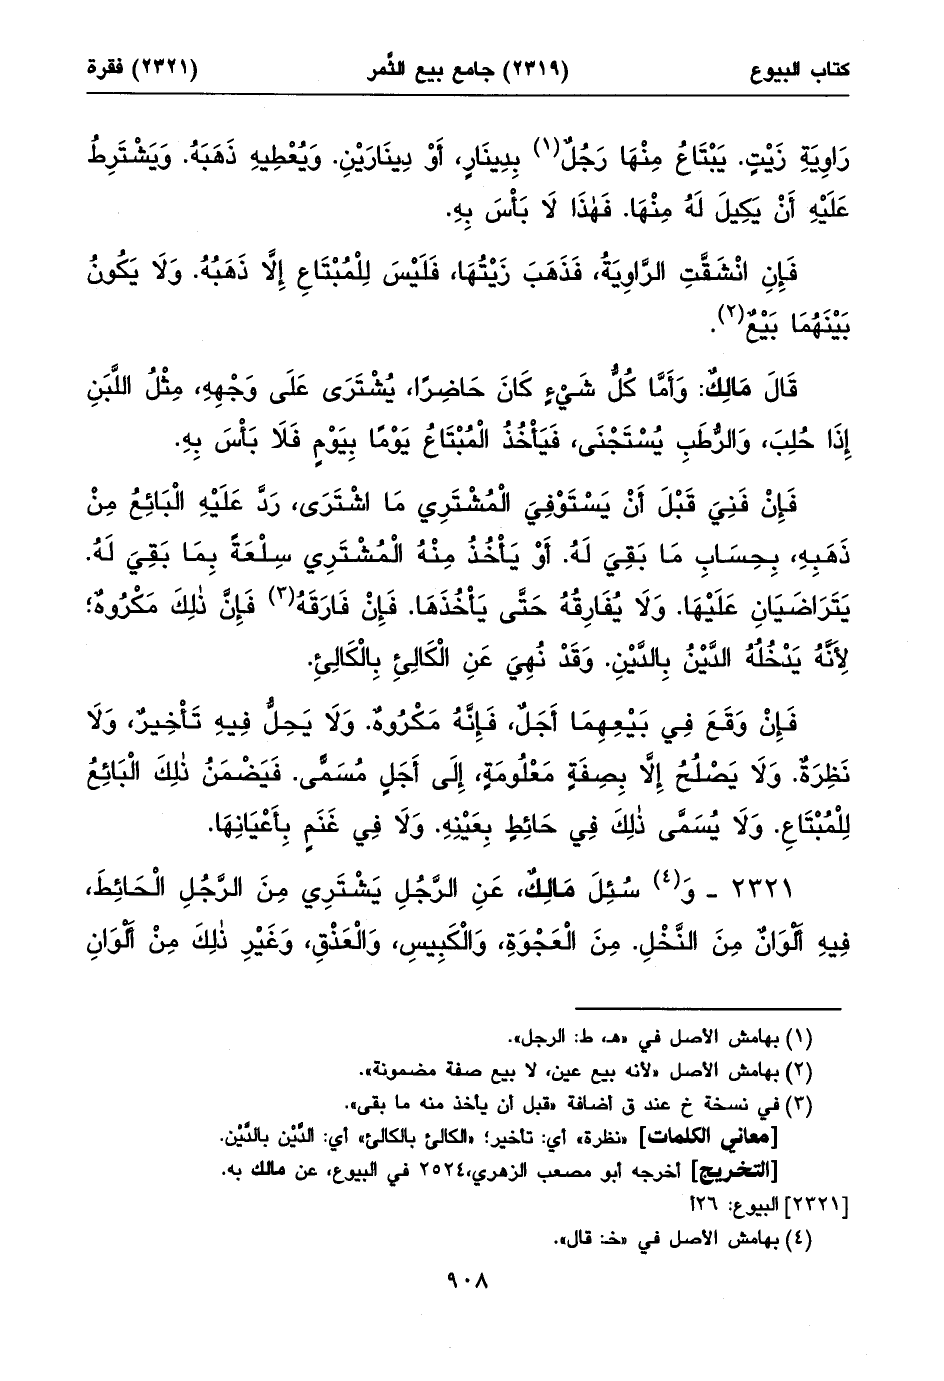 كتاب البيوع (٢٣١٩) جامع بيع الثَّمر (٢٣٢١) فقرة
رَاوِيَةِ زَيْتٍ. يَبْتَاعُ مِنْهَا رَجُلٌ(١) بِدِينَارٍ، أَوْ دِينَارَيْنِ. وَيُعْطِيهِ ذَهَبَهُ. وَيَشْتَرِطُ
عَلَيْهِ أَنْ يَكِيلَ لَهُ مِنْهَا. فَهٰذَا لَا بَأْسَ بِهِ.
فَإِنِ انْشَقَّتِ الرَّاوِيَةُ، فَذَهَبَ زَيْتُهَا، فَلَيْسَ لِلْمُبْتَاعِ إِلَّا ذَهَبُهُ. وَلَا يَكُونُ
بَيْنَهُمَا بَيْعٌ(٢).
قَالَ مَالِكٌ: وَأَمَّا كُلُّ شَيْءٍ كَانَ حَاضِرًا، يُشْتَرَى عَلَى وَجْهِهِ، مِثْلُ اللَّبَنِ
إِذَا حُلِبَ، وَالرُّطَبِ يُسْتَجْنَى، فَيَأْخُذُ الْمُبْتَاعُ يَوْمًا بِيَوْمٍ فَلَا بَأْسَ بِهِ.
فَإِنْ فَنِيَ قَبْلَ أَنْ يَسْتَوْفِيَ الْمُشْتَرِي مَا اشْتَرَى، رَدَّ عَلَيْهِ الْبَائِعُ مِنْ
ذَهَبِهِ، بِحِسَابِ مَا بَقِيَ لَهُ. أَوْ يَأْخُذُ مِنْهُ الْمُشْتَرِي سِلْعَةً بِمَا بَقِيَ لَهُ.
يَتَرَاضَيَانِ عَلَيْهَا. وَلَا يُفَارِقُهُ حَتَّى يَأْخُذَهَا. فَإِنْ فَارَقَهُ(٣) فَإِنَّ ذٰلِكَ مَكْرُوهٌ؛
لِأَنَّهُ يَدْخُلُهُ الدَّيْنُ بِالدَّيْنِ. وَقَدْ نُهِيَ عَنِ الْكَالِئِ بِالْكَالِئِ.
فَإِنْ وَقَعَ فِي بَيْعِهِمَا أَجَلٌ، فَإِنَّهُ مَكْرُوهٌ. وَلَا يَحِلُّ فِيهِ تَأْخِيرٌ، وَلَا
نَظِرَةٌ. وَلَا يَصْلُحُ إِلَّا بِصِفَةٍ مَعْلُومَةٍ، إِلَى أَجَلٍ مُسَمًّى. فَيَضْمَنُ ذٰلِكَ الْبَائِعُ
لِلْمُبْتَاعِ. وَلَا يُسَمَّى ذٰلِكَ فِي حَائِطٍ بِعَيْنِهِ. وَلَا فِي غَنَمٍ بِأَعْيَانِهَا.
٢٣٢١ - وَ(٤) سُئِلَ مَالِكٌ، عَنِ الرَّجُلِ يَشْتَرِي مِنَ الرَّجُلِ الْحَائِطَ،
فِيهِ أَلْوَانٌ مِنَ النَّخْلِ. مِنَ الْعَجْوَةِ، وَالْكَبِيسِ، وَالْعَذْقِ، وَغَيْرِ ذٰلِكَ مِنْ أَلْوَانِ
(١) بهامش الأصل في «هـ، ط: الرجل».
(٢) بهامش الأصل «لأنه بيع عين، لا بيع صفة مضمونة».
(٣) في نسخة خ عند ق أضافة «قبل أن يأخذ منه ما بقى».
[معاني الكلمات] «نظرة» أي: تأخير؛ «الكالئ بالكالئ» أي: الدَّيْن بالدَّيْن.
[التخريج] أخرجه أبو مصعب الزهري،٢٥٢٤ في البيوع، عن مالك به.
[٢٣٢١] البيوع: ٢٦أ
(٤) بهامش الأصل في «خـ: قال».
٩٠٨